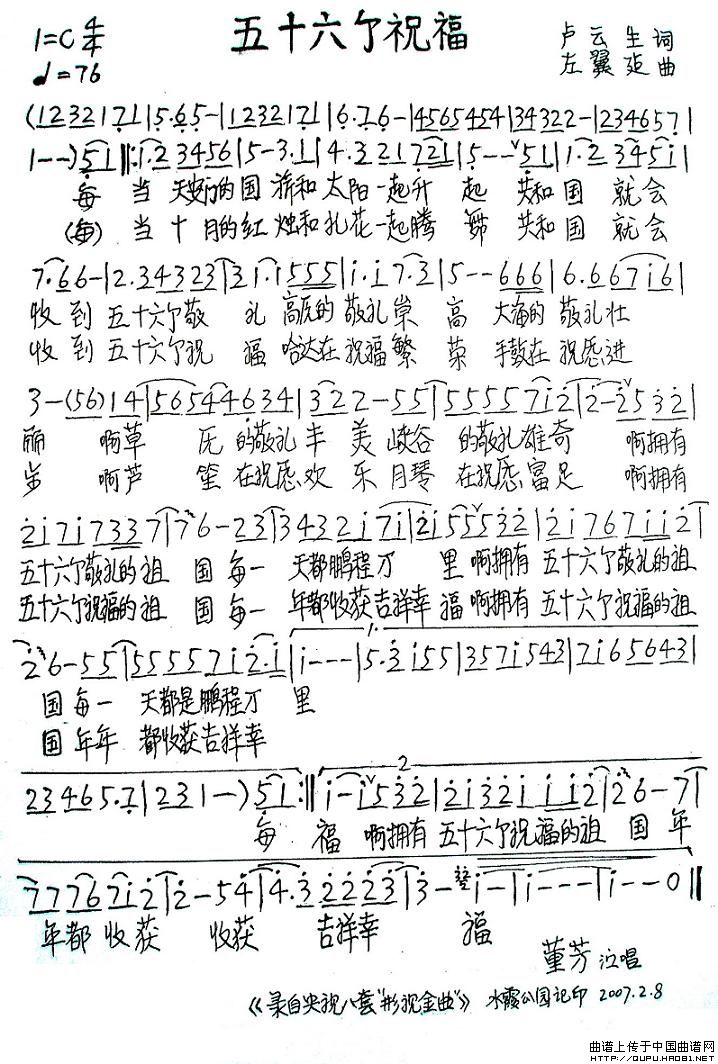 五十六个祝福
1=C 4/4
♩=76
卢云生 词
左翼延 曲
(1 2 3 2 1 7 1 | 5. 6 5 - | 1 2 3 2 1 7 1 | 6. 7 6 - | 4 5 6 5 4 5 4 | 3 4 3 2 2 - | 2 3 4 6 5 7 |
1 - - ) 5 1 ‖: 1. 2 3 4 5 6 | 5 - 3. 1 | 4. 3 2 1 7 2 1 | 5 - - 5 1 | 1. 2 3 4 5 i |
每 当 天安门的国 旗和 太阳一起升 起 共和 国 就会
(每) 当 十 月的红 烛和 礼花一起腾 舞 共和 国 就会
7. 6 6 - | 2. 3 4 3 2 3 | 3 1. 1 5 5 5 | i. i 7. 3 | 5 - - 6 6 6 | 6. 6 6 7 i 6 |
收 到 五十六个敬 礼 高原的 敬礼崇 高 大海的 敬礼壮
收 到 五十六个祝 福 哈达在 祝福繁 荣 手鼓在 祝愿进
3 - (5 6) 1 4 | 5 6 5 4 4 6 3 4 | 3 2 2 - 5 5 | 5 5 5 5 7 i 2 | 2 - 2 5 3 2 |
丽 啊草 原 的敬礼丰 美 峡谷 的敬礼雄奇 啊拥有
步 啊芦 笙 在祝愿欢 乐 月琴 在祝愿富足 啊拥有
2 i 7 i 7 3 3 7 | 7 6 - 2 3 | 3 4 3 2 i 7 i | 2 i 5 5 5 3 2 | 2 i 7 6 7 i i 2 |
五十六个敬礼的祖 国 每一 天都鹏程万 里 啊拥有 五十六个敬礼的祖
五十六个祝福的祖 国 每一 年都收获吉祥幸 福 啊拥有 五十六个祝福的祖
2 6 - 5 5 | 5 5 5 5 7 i 2. i | 1. i - - - | 5. 3 i 5 5 | 3 5 7 i 5 4 3 | 7 i 6 5 6 4 3 |
国 每一 天都是鹏程万 里
国 年年 都收获吉祥幸
2 3 4 6 5. 7 | 2 3 1 - ) 5 1 :‖ 2 i - i 5 3 2 | 2 i 3 2 i i i 2 | 2 6 - 7 |
每 福 啊拥有 五十六个祝福的祖 国 年
7 7 7 6 7 i 2 | 2 - 5 4 | 4. 3 2 2 2 3 | 3 - i - | i - - - | i - - 0 ‖
年都 收获 收获 吉祥幸 福
董芳 演唱
《录自央视八套"影视金曲"》 水霞公园记印 2007.2.8
曲谱上传于中国曲谱网
HTTP://QUPU.HAO81.NET